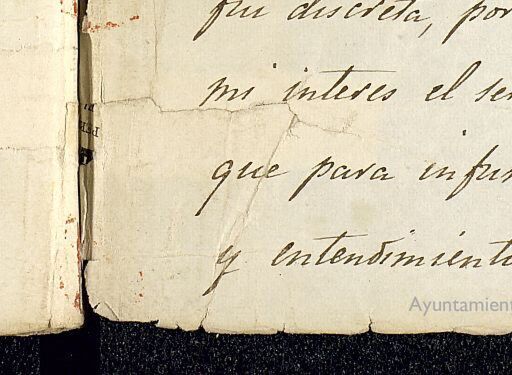 fui discreta, por
mi interes el ser
que para infun
y entendimiento
Ayuntamient